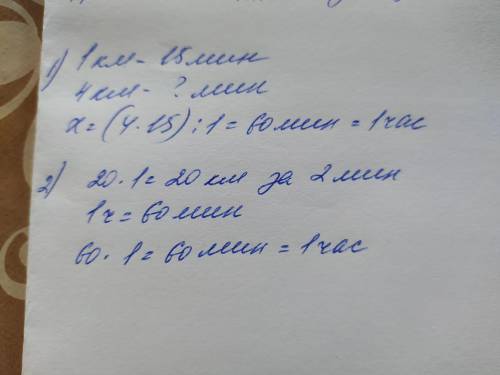 1) 1км - 15мин
4км - ? мин
x = (4·15) : 1 = 60мин = 1час
2) 20·1 = 20км за 2мин
1ч = 60мин
60·1 = 60мин = 1час